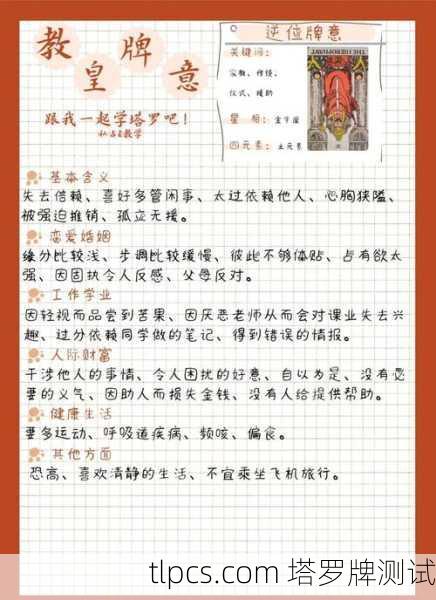 教皇牌意
跟我一起学塔罗吧!
私占&教学
逆位牌意
关键词:
宗教、传统、
仪式、援助
星 相: 金牛座
四元素: 土元素
THE HIEROPHANT
基本含义
失去信赖、喜好多管闲事、太过依赖他人、心胸狭隘、
被强迫推销、孤立无援。
恋爱婚姻
缘分比较浅、步调比较缓慢、彼此不够体贴、占有欲太
强、因固执令人反感、父母反对。
工作学业
因轻视而品尝到苦果、因厌恶老师从而会对课业失去兴
趣、过分依赖同学做的笔记、得到错误的情报。
人际财富
干涉他人的事情、令人困扰的好意、自以为是、没有必
要的义气、因助人而损失金钱、没有人给提供帮助。
健康生活
要多运动、呼吸道疾病、频咳、偏食。
其他方面
恐高、喜欢清静的生活、不宜乘坐飞机旅行。
tlpcs.com 塔罗牌测试